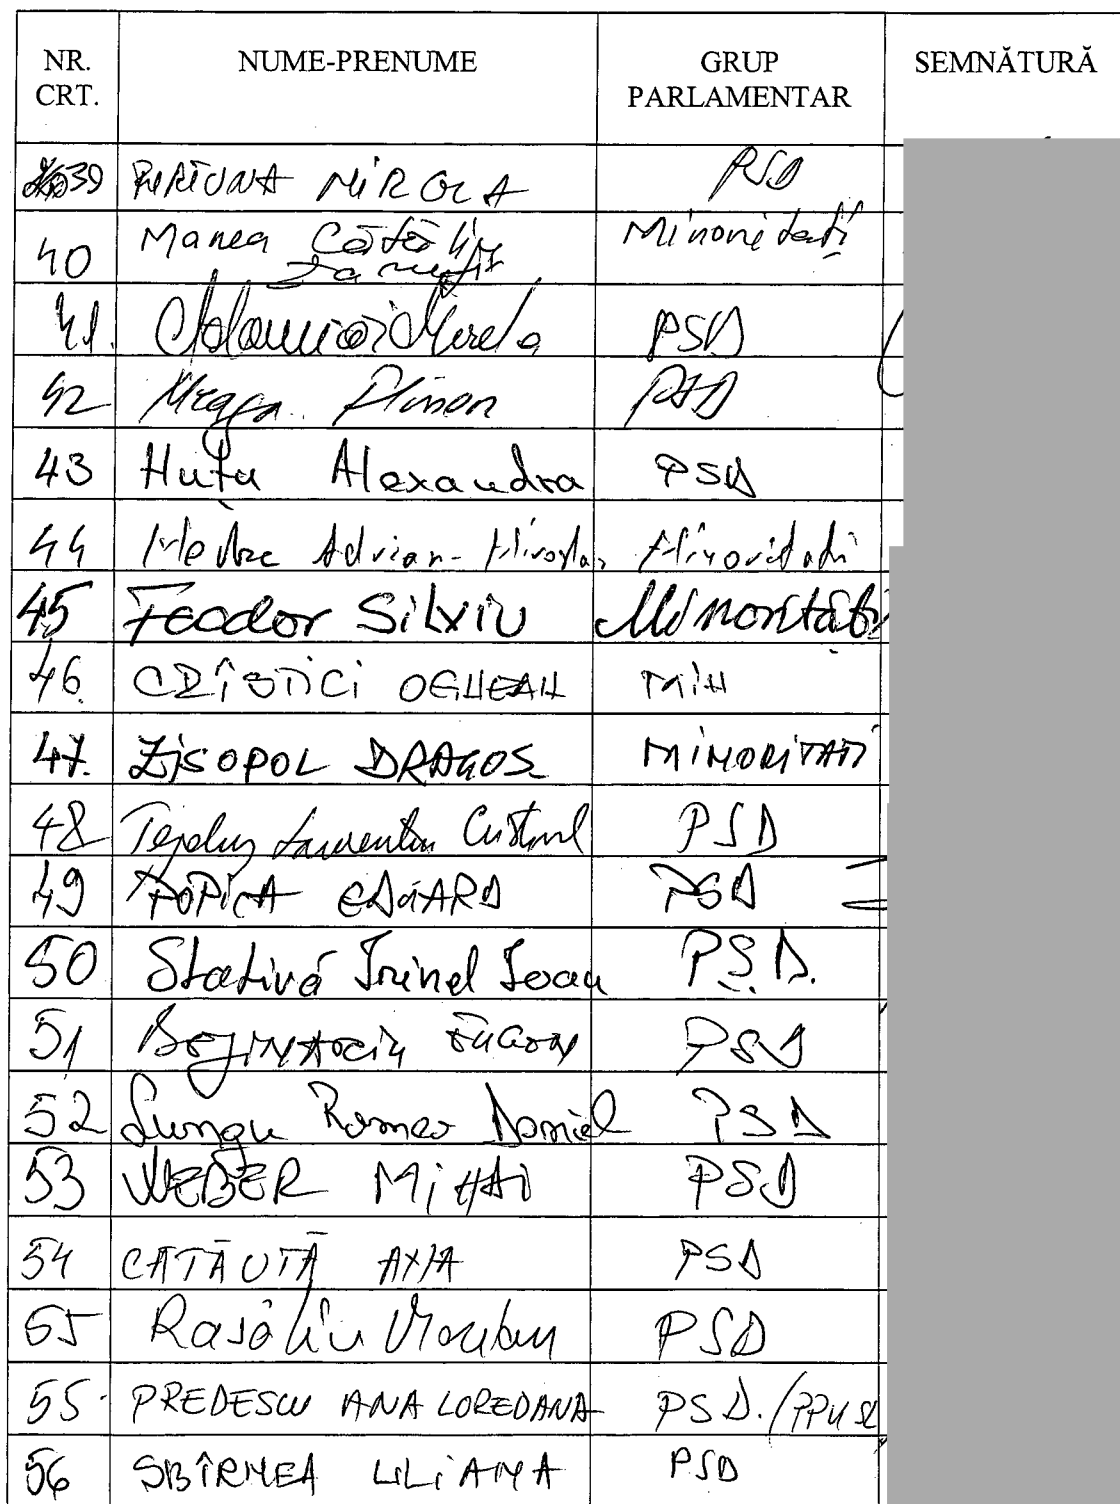 NR. CRT. NUME-PRENUME GRUP PARLAMENTAR SEMNĂTURĂ
39 MIRELA PSD
40 Manea Cătălin Minorități
41. Mirela PSD
42 PSD
43 Huțu Alexandra PSD
44 Adrian-Miroslav Minorități
45 Feodor Silviu Minorități
46 OGHEAN MIN
47. ZISOPOL DRAGOS MINORITATI
48 Laurentiu PSD
49 POPICA EDUARD PSD
50 Stativă Irinel Ioan P.S.D.
51 EUGEN PSD
52 Lungu Romeo Daniel PSD
53 WEBER MIHAI PSD
54 CĂTĂUTĂ PSD
55 Rasaliu PSD
55 PREDESCU ANA LOREDANA PSD./PPUSL
56 SBÎRNEA LILIANA PSD